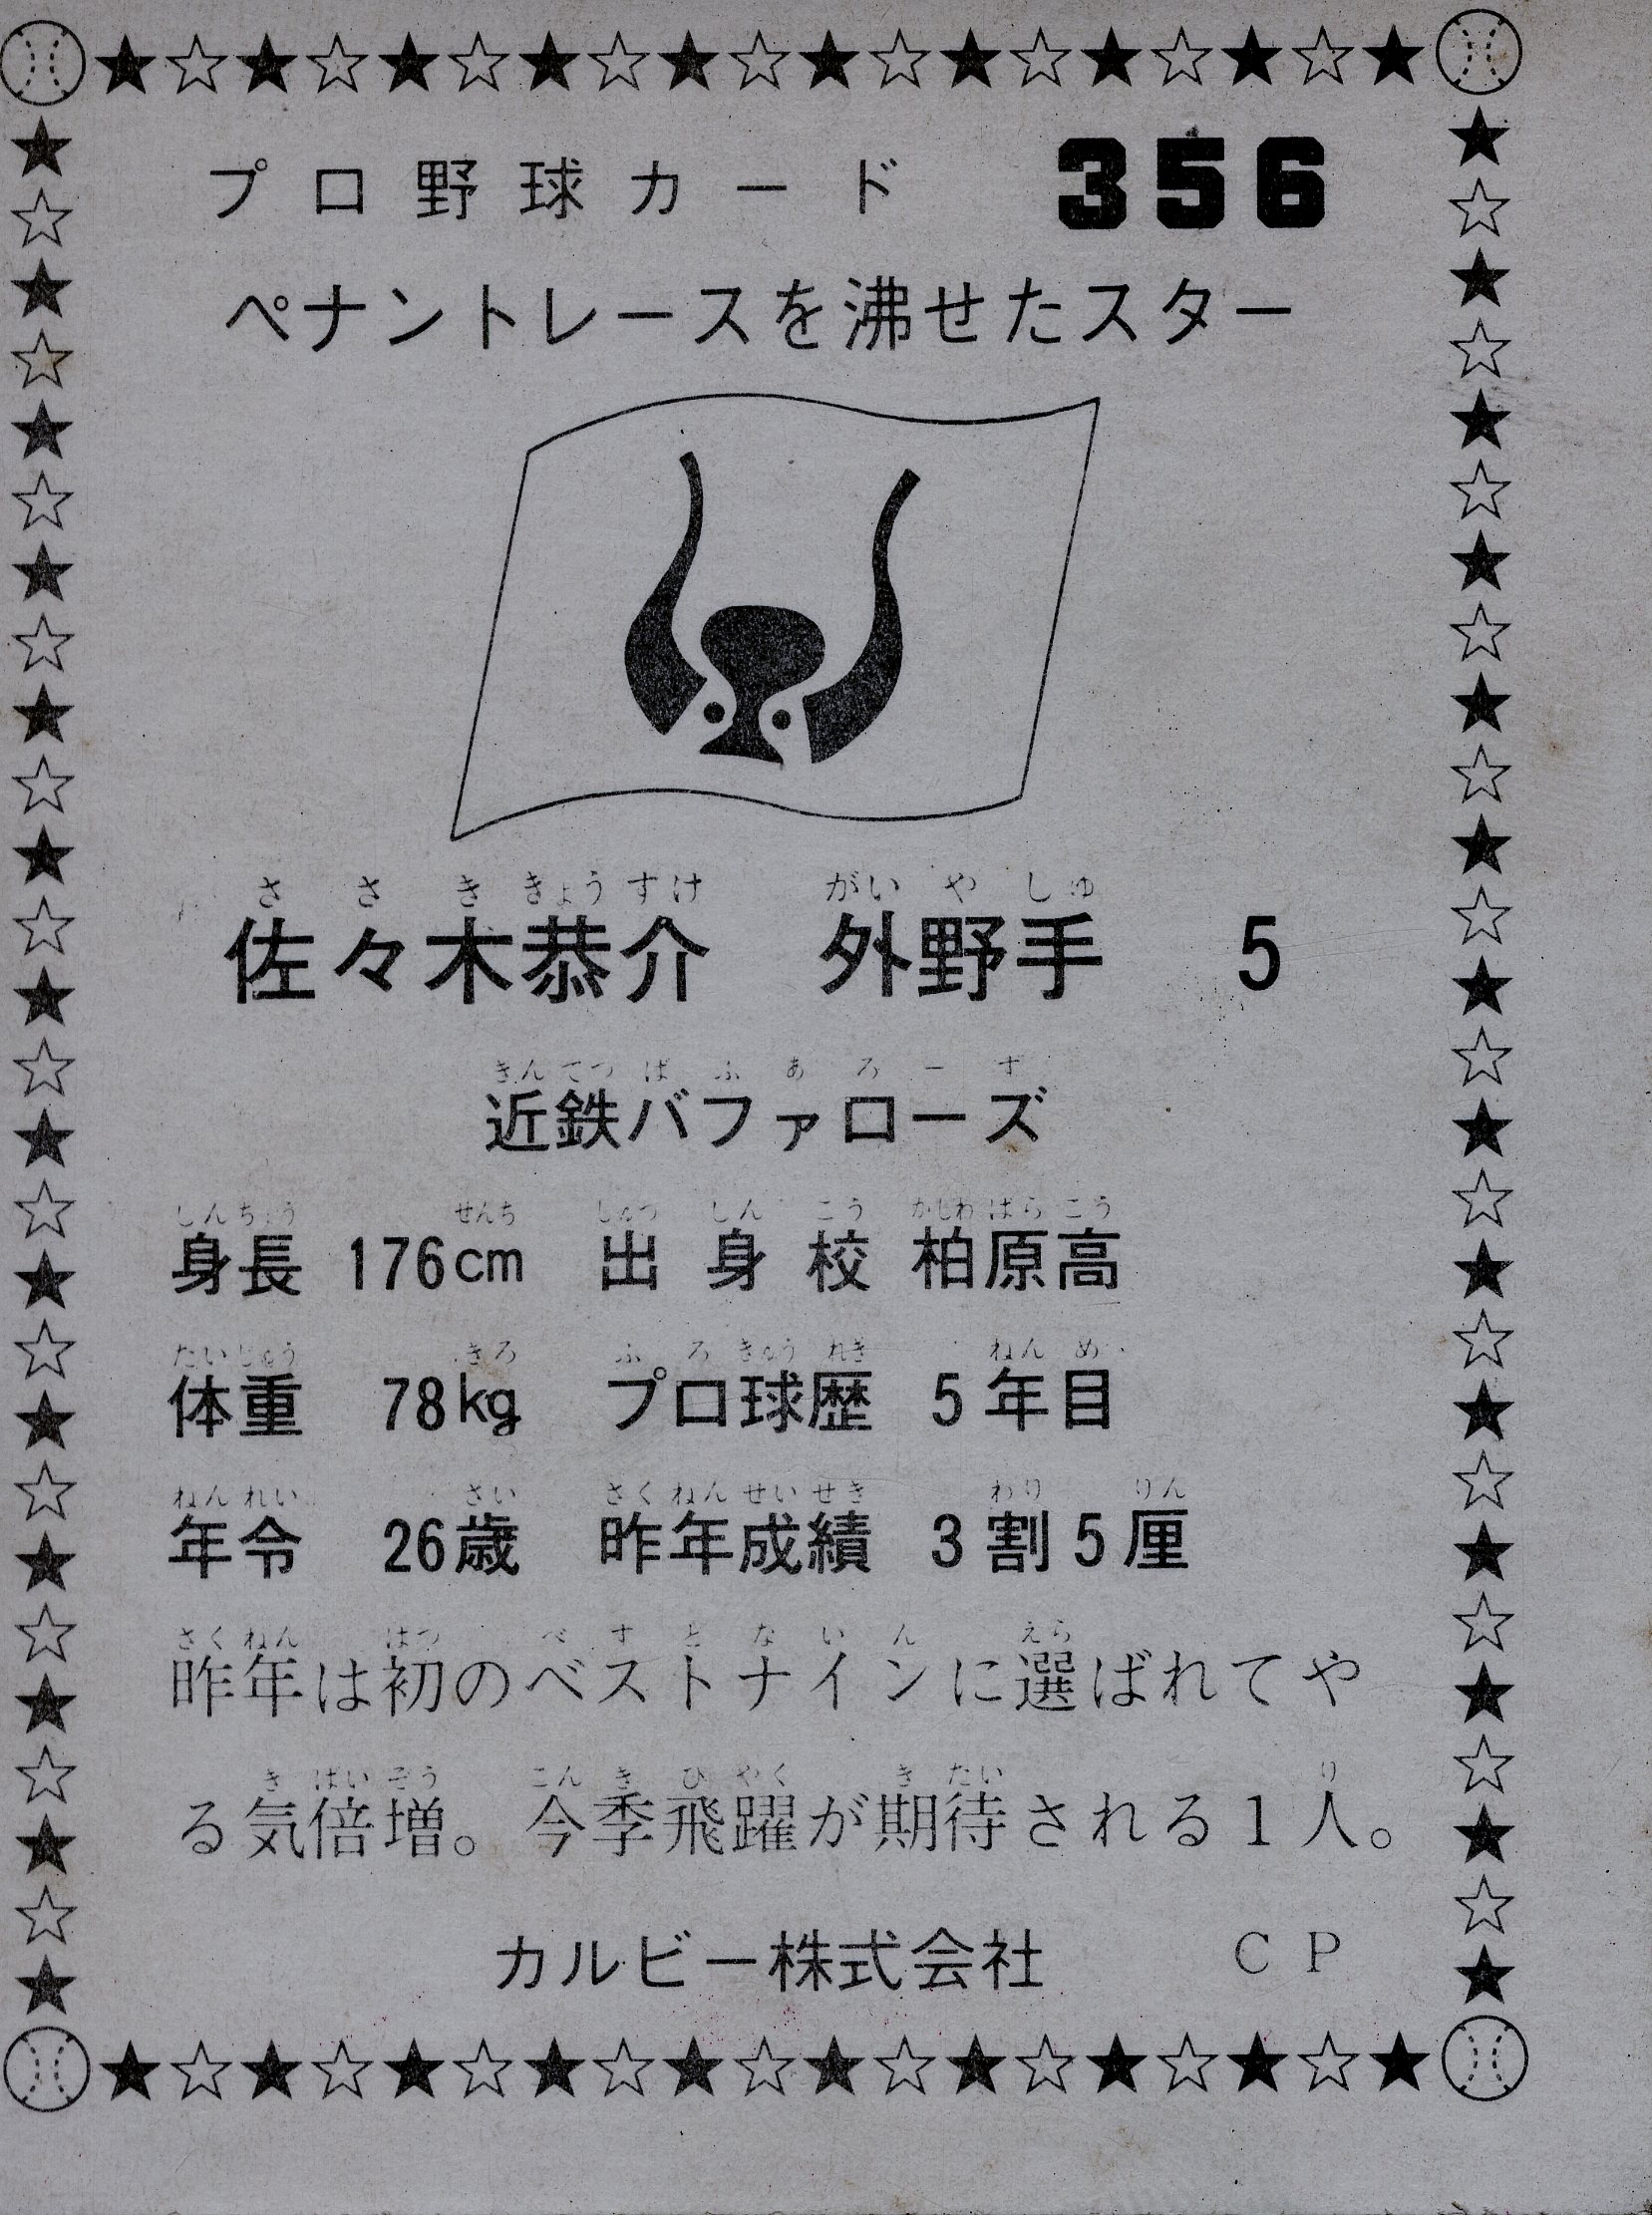 プロ野球カード 356
ペナントレースを沸せたスター
さ さ き きょう すけ がい や しゅ
佐々木恭介 外野手 5
きん てつ ば ふ あ ろ ー ず
近鉄バファローズ
しんちょう せんち しゅつ しん こう かしわ ばら こう
身長 176cm 出身校 柏原高
たいじゅう きろ ぷ ろ きゅう れき ねん め
体重 78kg プロ球歴 5年目
ねん れい さい さく ねん せい せき わり りん
年令 26歳 昨年成績 3割5厘
さく ねん はつ べ す と な い ん えら
昨年は初のベストナインに選ばれてや
き ばい ぞう こん き ひ やく き たい り
る気倍増。今季飛躍が期待される1人。
カルビー株式会社 CP